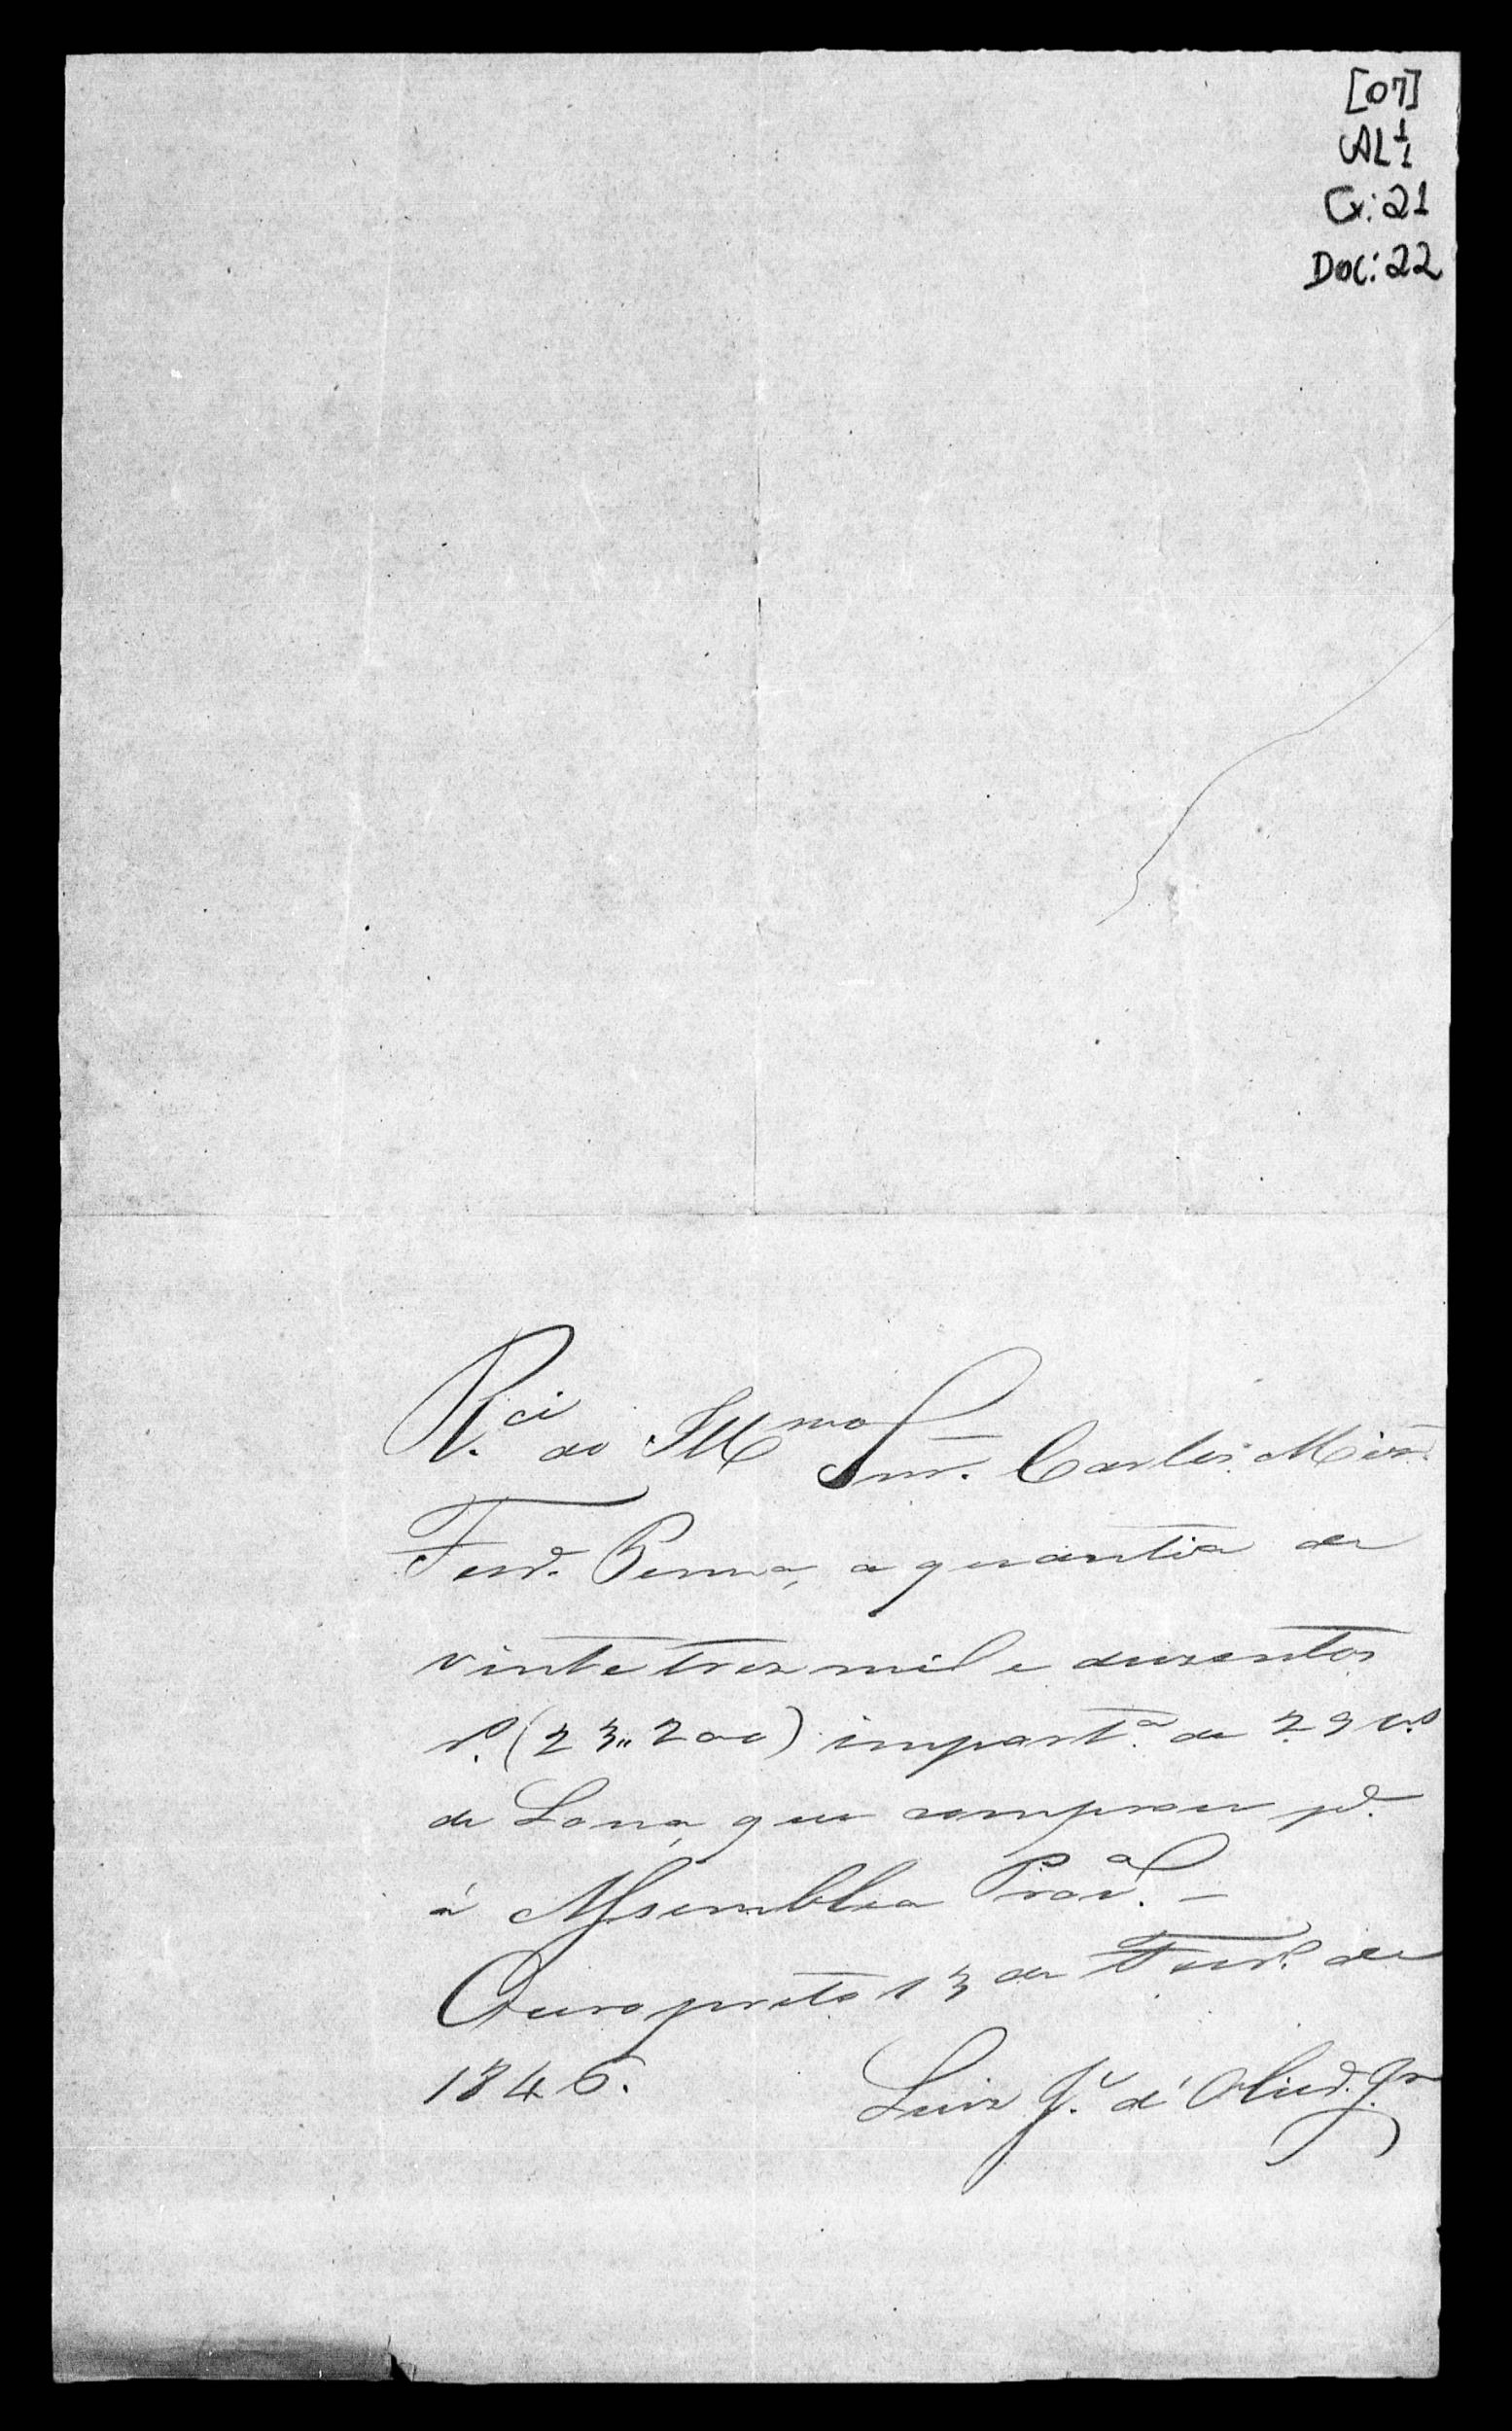 [07]
AL 1/1
Cx: 21
Doc: 22
R.ci do Illmo Snr. Carlos
Ferd. Penna, a quantia de
vinte tres mil e duzentos
r.s (23,,200) import.a de 29 v.s
de Lona, que comprou p.a
á Assemblea Prov.al —
Ouro preto 13 de de
1846. Luiz J.e d'Oliv.a